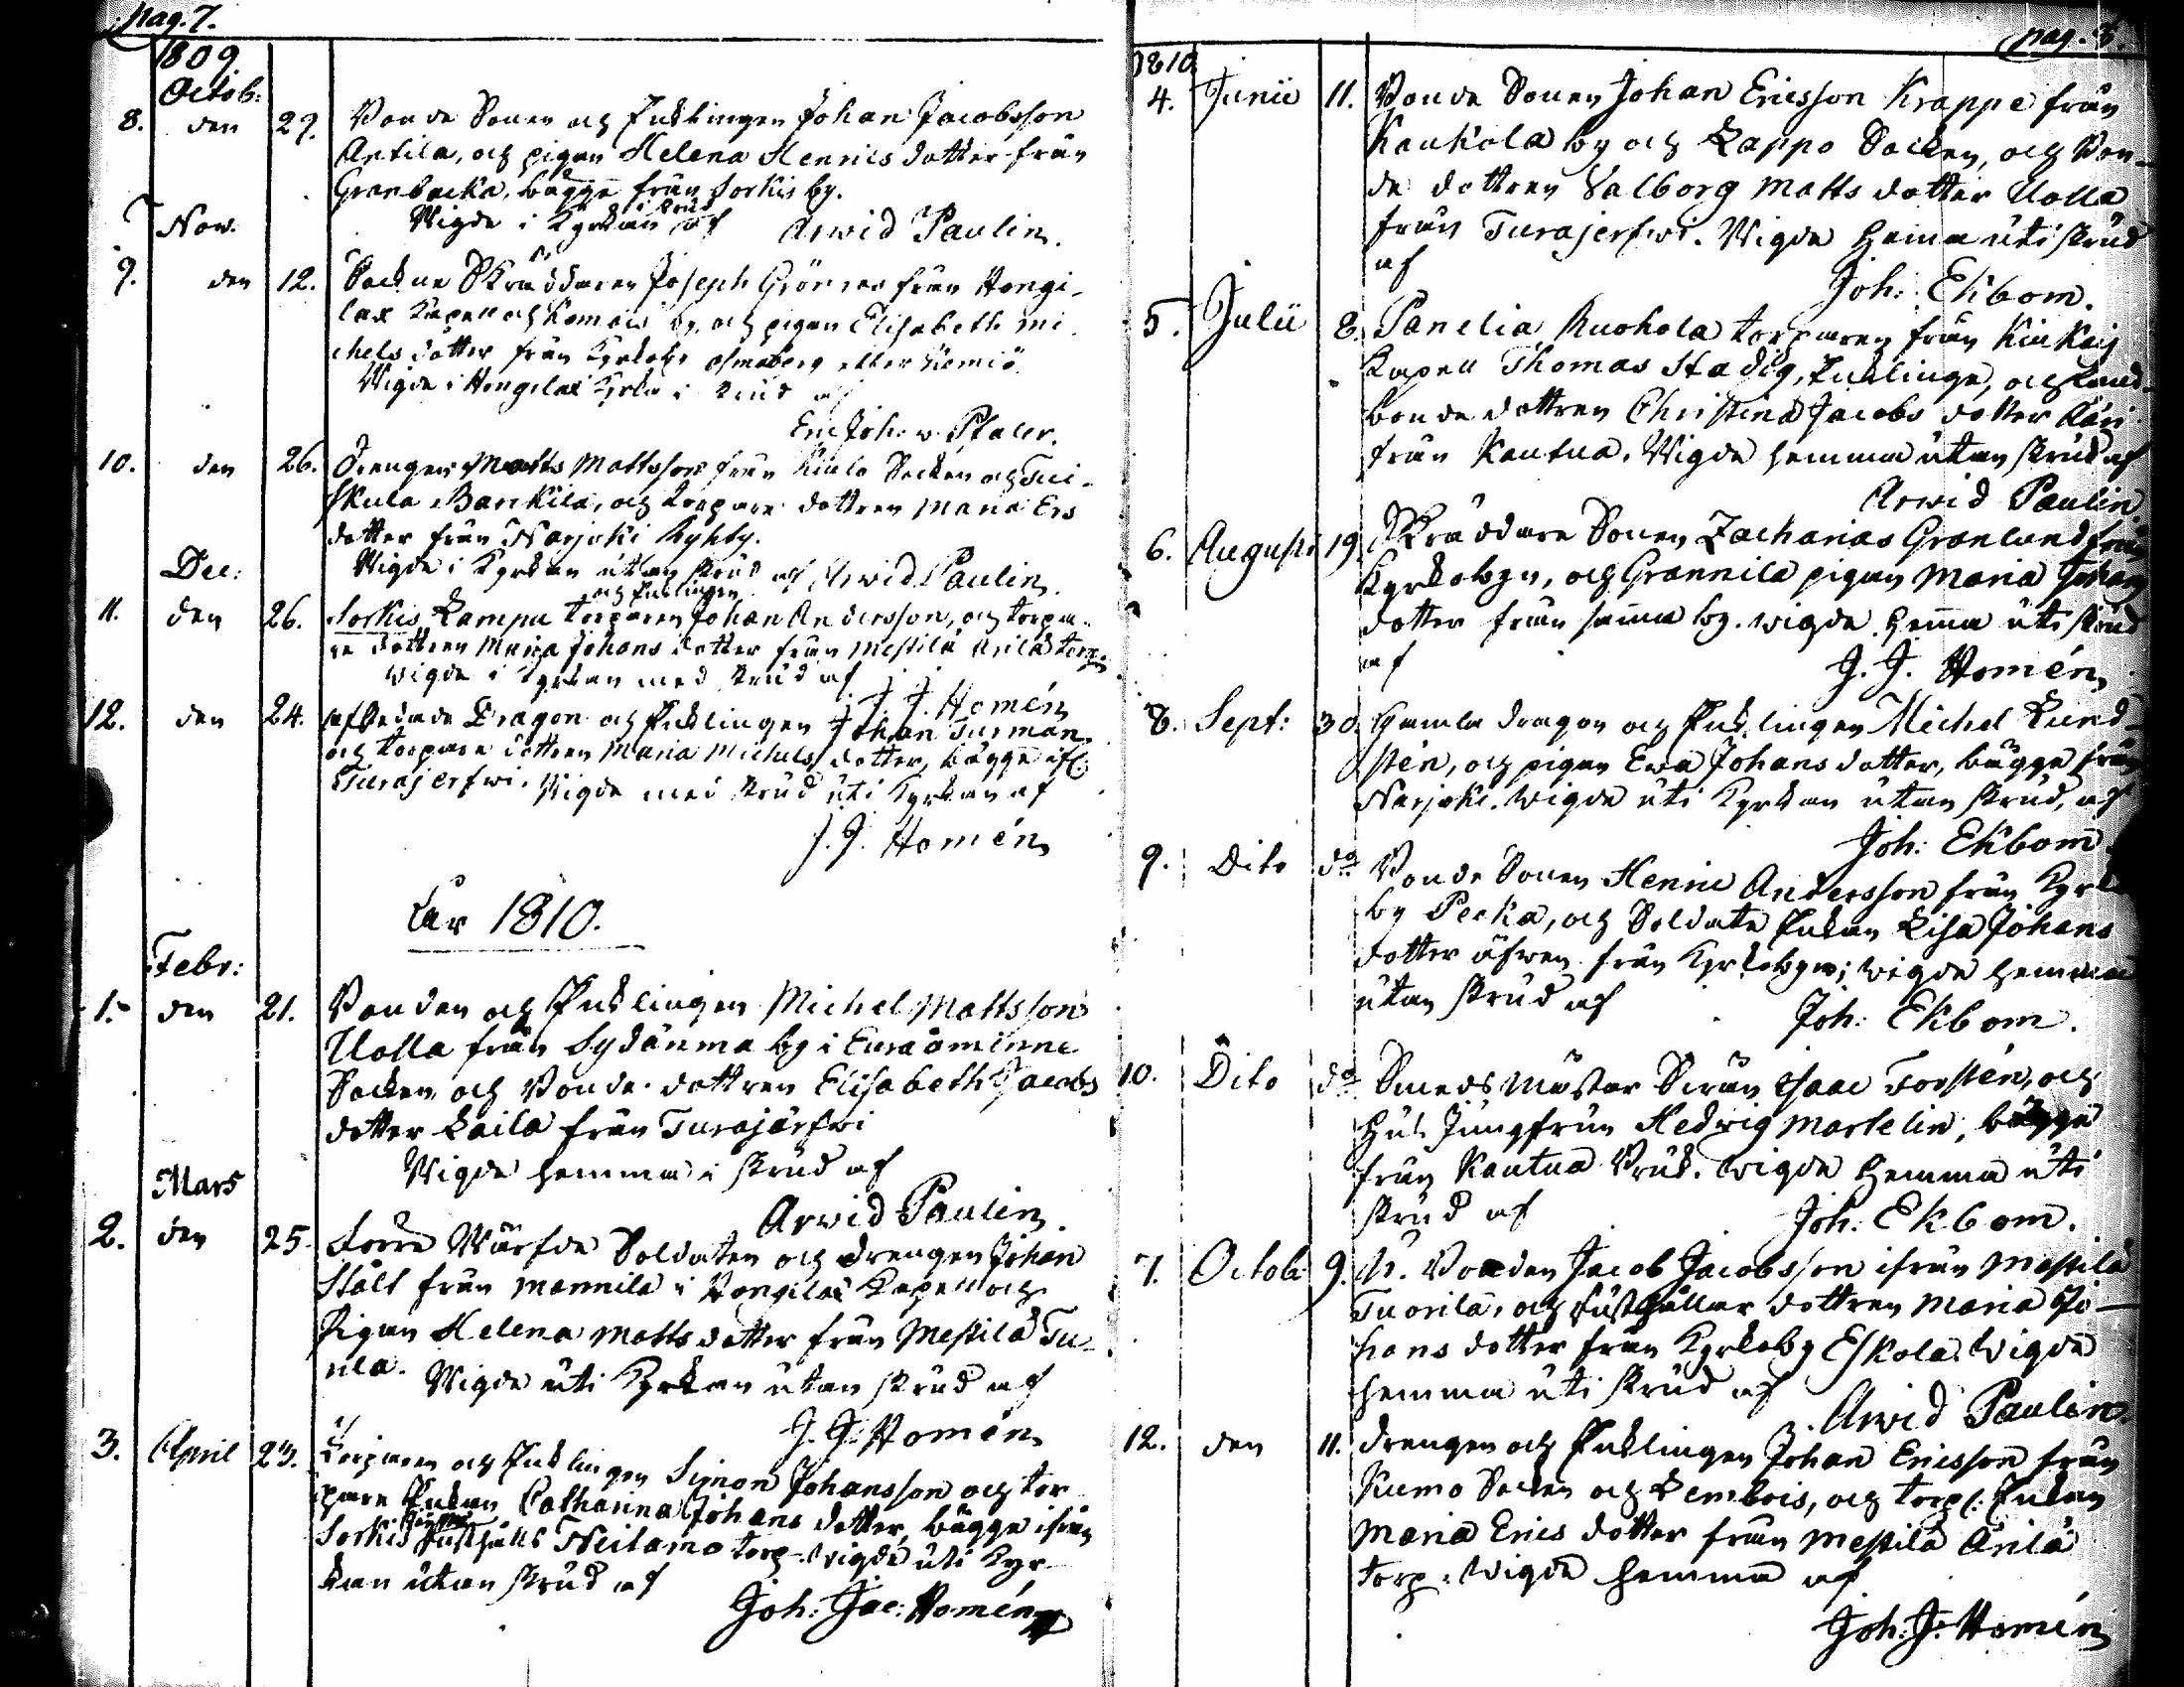 pag. 7.
1809.
Octob:
8. den 29. Bonde Sonen och Enklingen Johan Jacobsson
Antila, och pigan Helena Henrics dotter från
Granbacka, bägge från Sorkis by.
Wigde i Kyrkan i skrud af Arwid Paulin.
Nov.
9. den 12. Sockne Skräddaren Joseph Grönroos från Hongi-
lax Kapell och by, och pigan Elisabeth Mi
chels dotter från Kyrkoby eller
Wigde i Hongilax Kyrka i skrud af
Eric Joh: v. Pfaler.
10. den 26. Drengen Matts Mattsson från Kiulo Socken och Tui-
skula Barckila, och torpare dottren Maria Ers
dotter från Narjoki Kyhby.
Wigde i Kyrkan utan skrud af Arwid Paulin.
Dec:
och Enklingen
11. den 26. Sorkis Lampu torparen Johan Andersson, och torpa-
re dottren Maria Johans dotter från Mestilä Arilä torp.
wigde i Kyrkan med skrud af
J. J. Homén
12. den 24. afskedade Dragon och Enklingen Johan Turman
och torpare dottren Maria Michels dotter, bägge ifr:
Turajerfwi. Wigde med skrud uti Kyrkan af
J. J. Homén
År 1810.
Febr:
1. den 21. Bonden och Enklingen Michel Mattsson
Uolla från Sydänma by i Euraåminne
Socken, och Bonde dottren Elisabeth Jacobs
dotter Laila från Turajärfwi
Wigde hemma i skrud af
Arwid Paulin.
Mars
2. den 25. Förre Wärfde Soldaten och drengen Johan
Stålt från Mannila i Hongilax Kapell och
Pigan Helena Matts dotter från Mestilä Tu-
nla. Wigde uti Kyrkan utan skrud af
J. J. Homén
3. April 23. Torparen och Enklingen Simon Johansson och tor
pare Enkan Catharina Johans dotter, bägge ifrån
Sorkis Rusthålls Neitamo torp. Wigde uti Kyr-
kan utan skrud af
Joh: Jac: Homén
pag. 8.
1810.
4. Junii 11. Bonde Sonen Johan Ericsson Krappe från
Kaukola by och Lappo Socken, och Bon-
de dottren Valborg Matts dotter Uolla
från Turajerfwi. Wigde hemma uti skrud
af
Joh: Ekbom.
5. Julii 8. Panelia Ruohola torparen från Kiukais
Kapell Thomas Stadig, Enklinge, och Land-
bonde dottren Christina Jacobs dotter
från Kautua. Wigde hemma utan skrud af
Arwid Paulin
6. Augusti 19 Skräddare Sonen Zacharias Grönlund från
Kyrkobyn, och Grannila pigan Maria Johans
dotter från samma by. wigde hemma uti skrud
af
J. J. Homén
8. Sept: 30. Gamla dragon och Enklingen Michel Lund-
stén, och pigan Ewa Johans dotter, bägge från
Narjoki. Wigde uti Kyrkan utan skrud, af
Joh: Ekbom
9. Dito do Bonde Sonen Henric Andersson från Kyrko
by Pecka, och Soldate Enkan Lisa Johans
dotter äfwen från Kyrkobyn; wigde hemma
utan skrud af
Joh: Ekbom.
10. Dito do Smeds Mästar Swän Isaac Forstén, och
Hus Jungfrun Hedwig Martelin, bägge
från Kautua Bruk. wigde hemma uti
skrud af
Joh: Ekbom.
7. Octob: 9. N. Bonden Jacob Jacobsson ifrån Mestilä
Tuorila, och Rusthållar dottren Maria Jo-
hans dotter från Kyrkoby Eskola. Wigde
hemma uti skrud af
Arwid Paulin.
12. den 11. drengen och Enklingen Johan Ericsson från
Kumo Socken och Lembois, och torp: Enkan
Maria Erics dotter från Mestilä Arilä
torp. Wigde hemma af
Joh: J: Homén